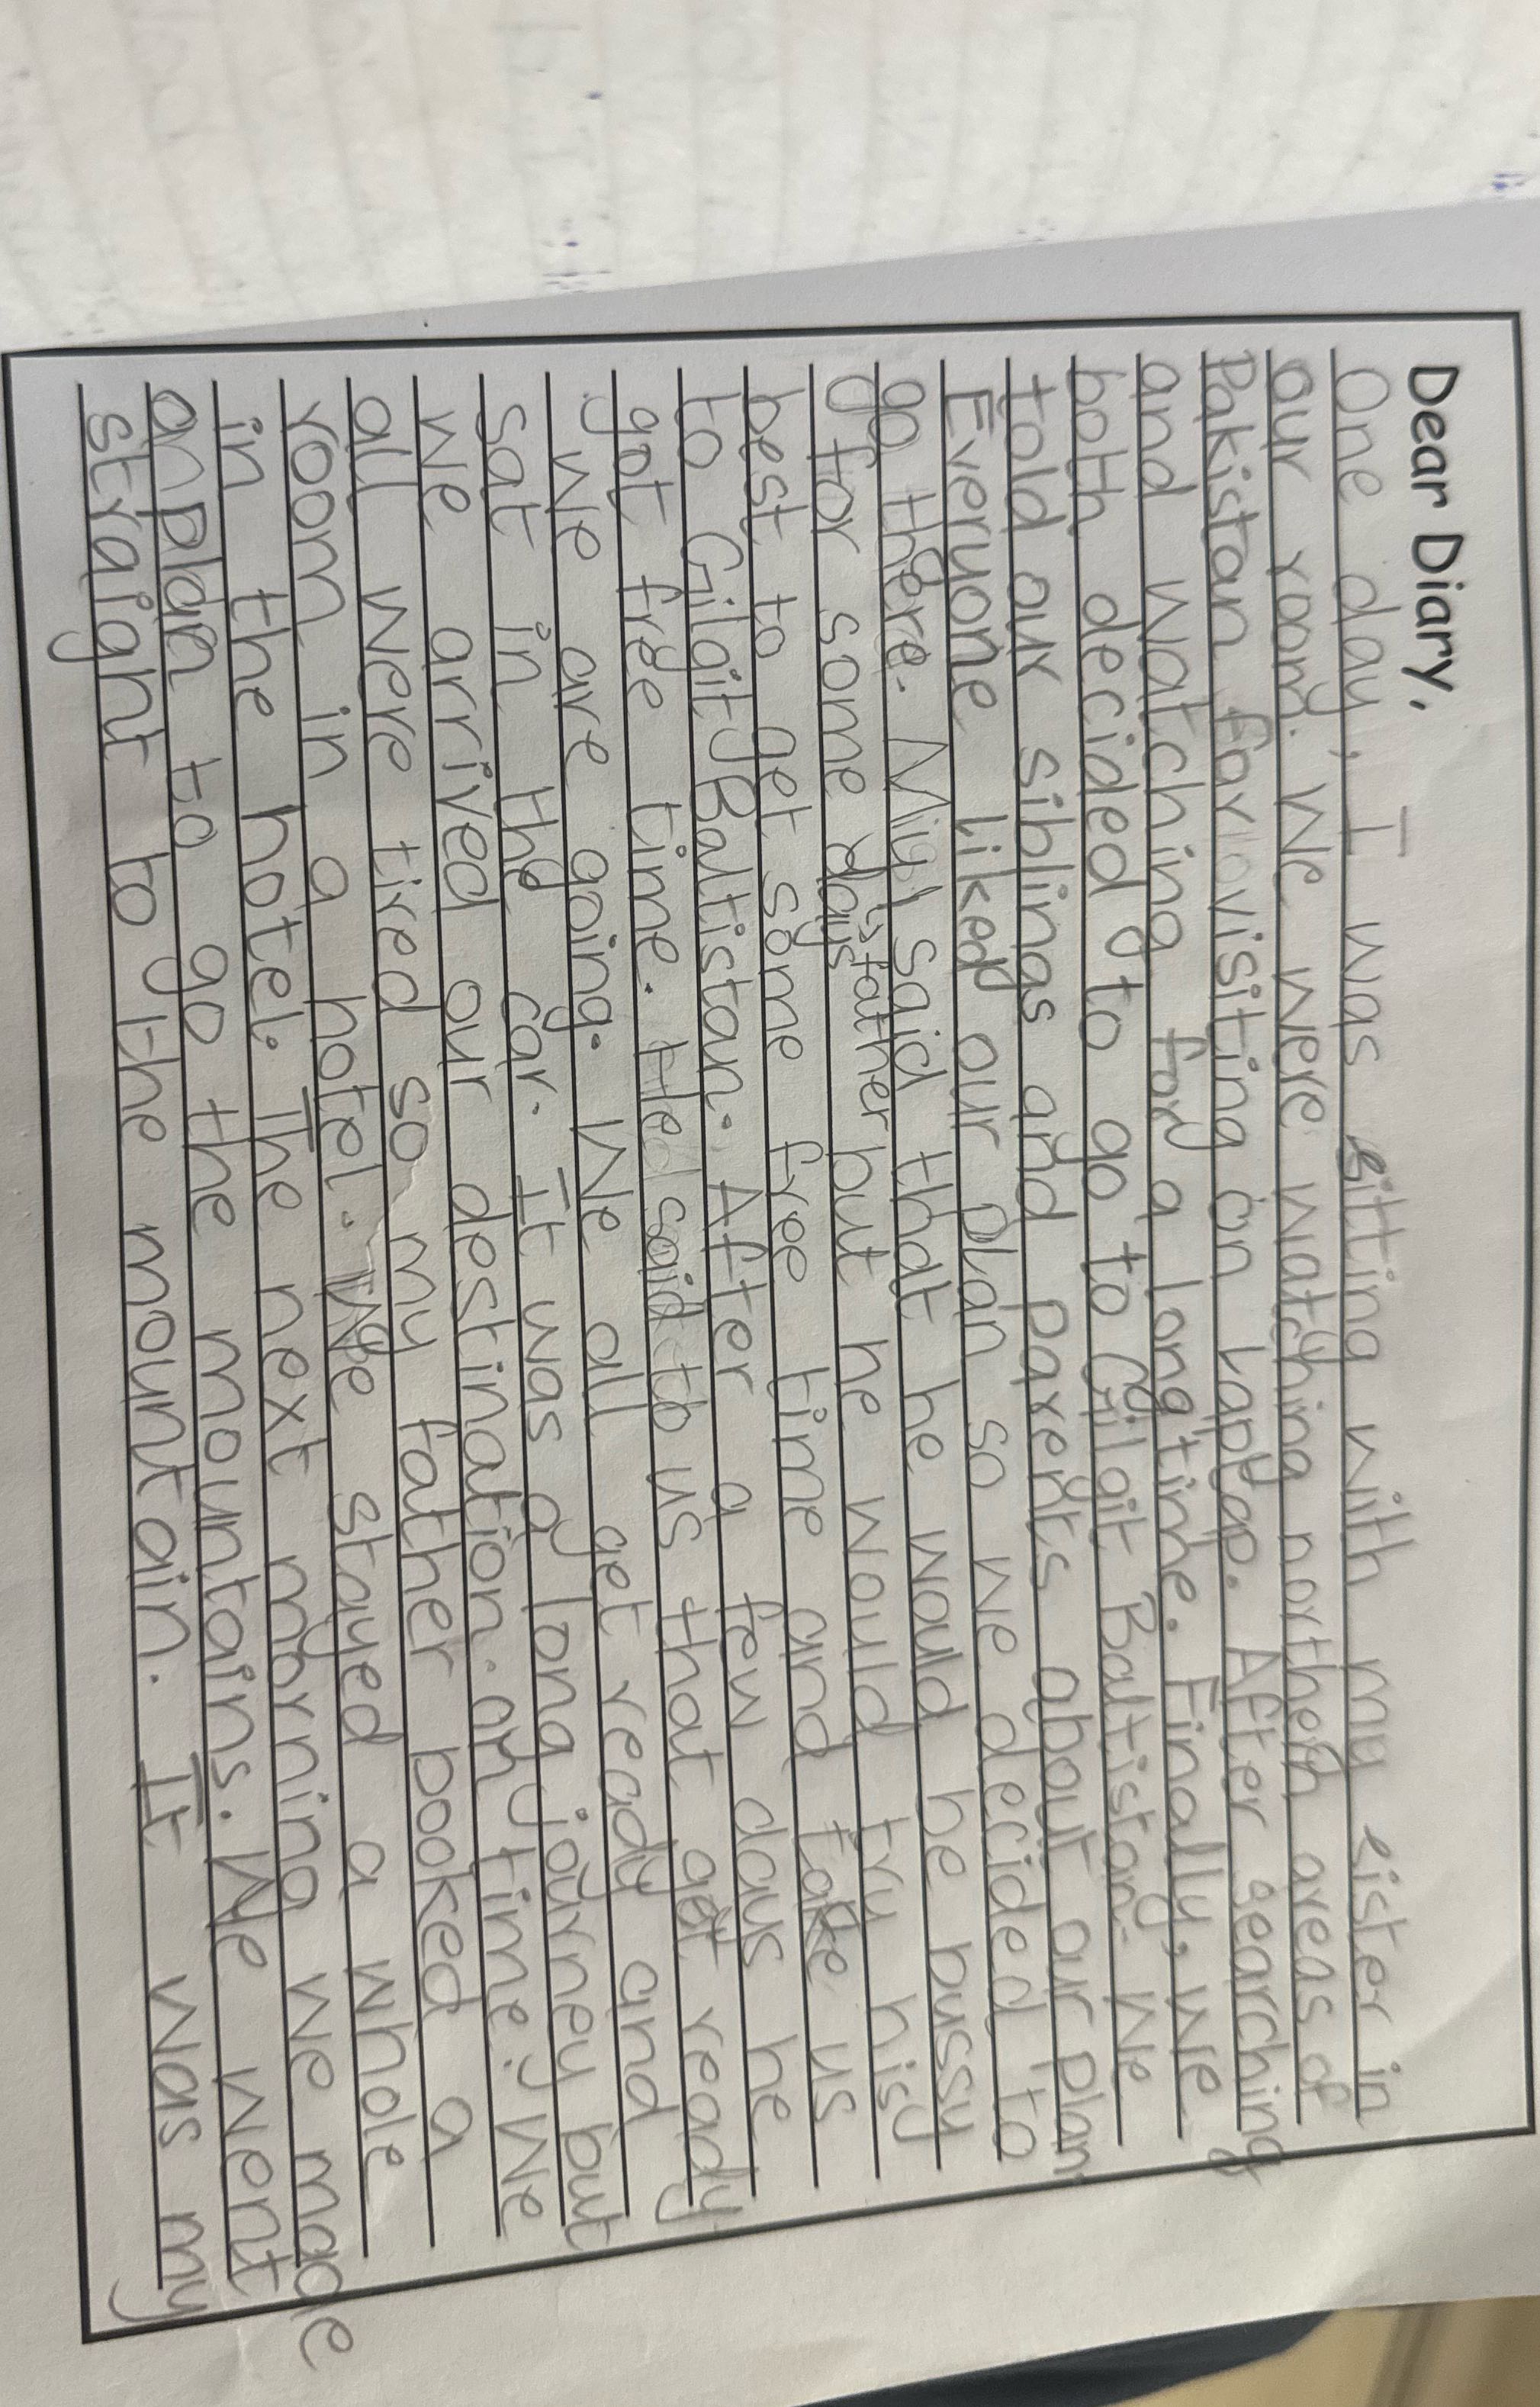 Dear Diary,
One day, I was sitting with my sister in
our room. We were watching northern areas of
Pakistan for visiting on Laptop. After searching
and watching for a long time. Finally, we
both decided to go to Gilgit Baltistan. We
told our siblings and parents about our plan
Everyone liked our plan so we decided to
go there. My said that he would be bussy
father
for some days but he would try his
best to get some free time and take us
to Gilgit Baltistan. After a few days he
got free time. He said to us that get ready
we are going. We all get ready and
sat in the car. It was a long journey but
we arrived our destination on time. We
all were tired so my father booked a
room in a hotel. We stayed a whole
in the hotel. The next morning we made
an plan to go the mountains. We went
straight to the mountain. It was my